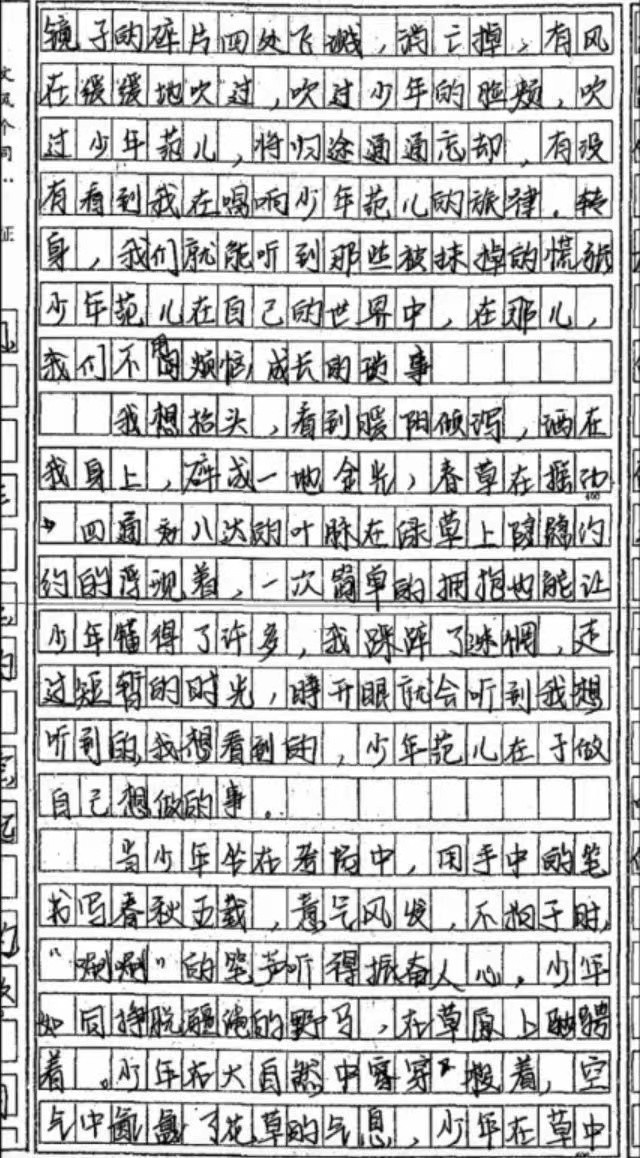 镜子的碎片四处飞溅，消亡掉，有风
在缓缓地吹过，吹过少年的脸颊，吹
过少年范儿，将归途通通忘却，有没
有看到我在唱响少年范儿的旋律。转
身，我们就能听到那些被抹掉的慌张
少年范儿在自己的世界中，在那儿，
我们不用烦恼成长的琐事
我想抬头，看到暖阳倾泻，洒在
我身上，碎成一地金光，春草在摇动
四通八达的叶脉在绿草上隐隐约
约的浮现着，一次简单的拥抱也能让
少年懂得了许多，我踩碎了迷惘，走
过短暂的时光，睁开眼就会听到我想
听到的，我想看到的，少年范儿在于做
自己想做的事。
当少年坐在考场中，用手中的笔
书写春秋五载，意气风发，不拘于时，
“唰唰”的笔声听得振奋人心。少年
如同挣脱疆绳的野马，在草原上驰骋
着。少年在大自然中穿梭着，空
气中了花草的气息，少年在草中
400
文风个司
征